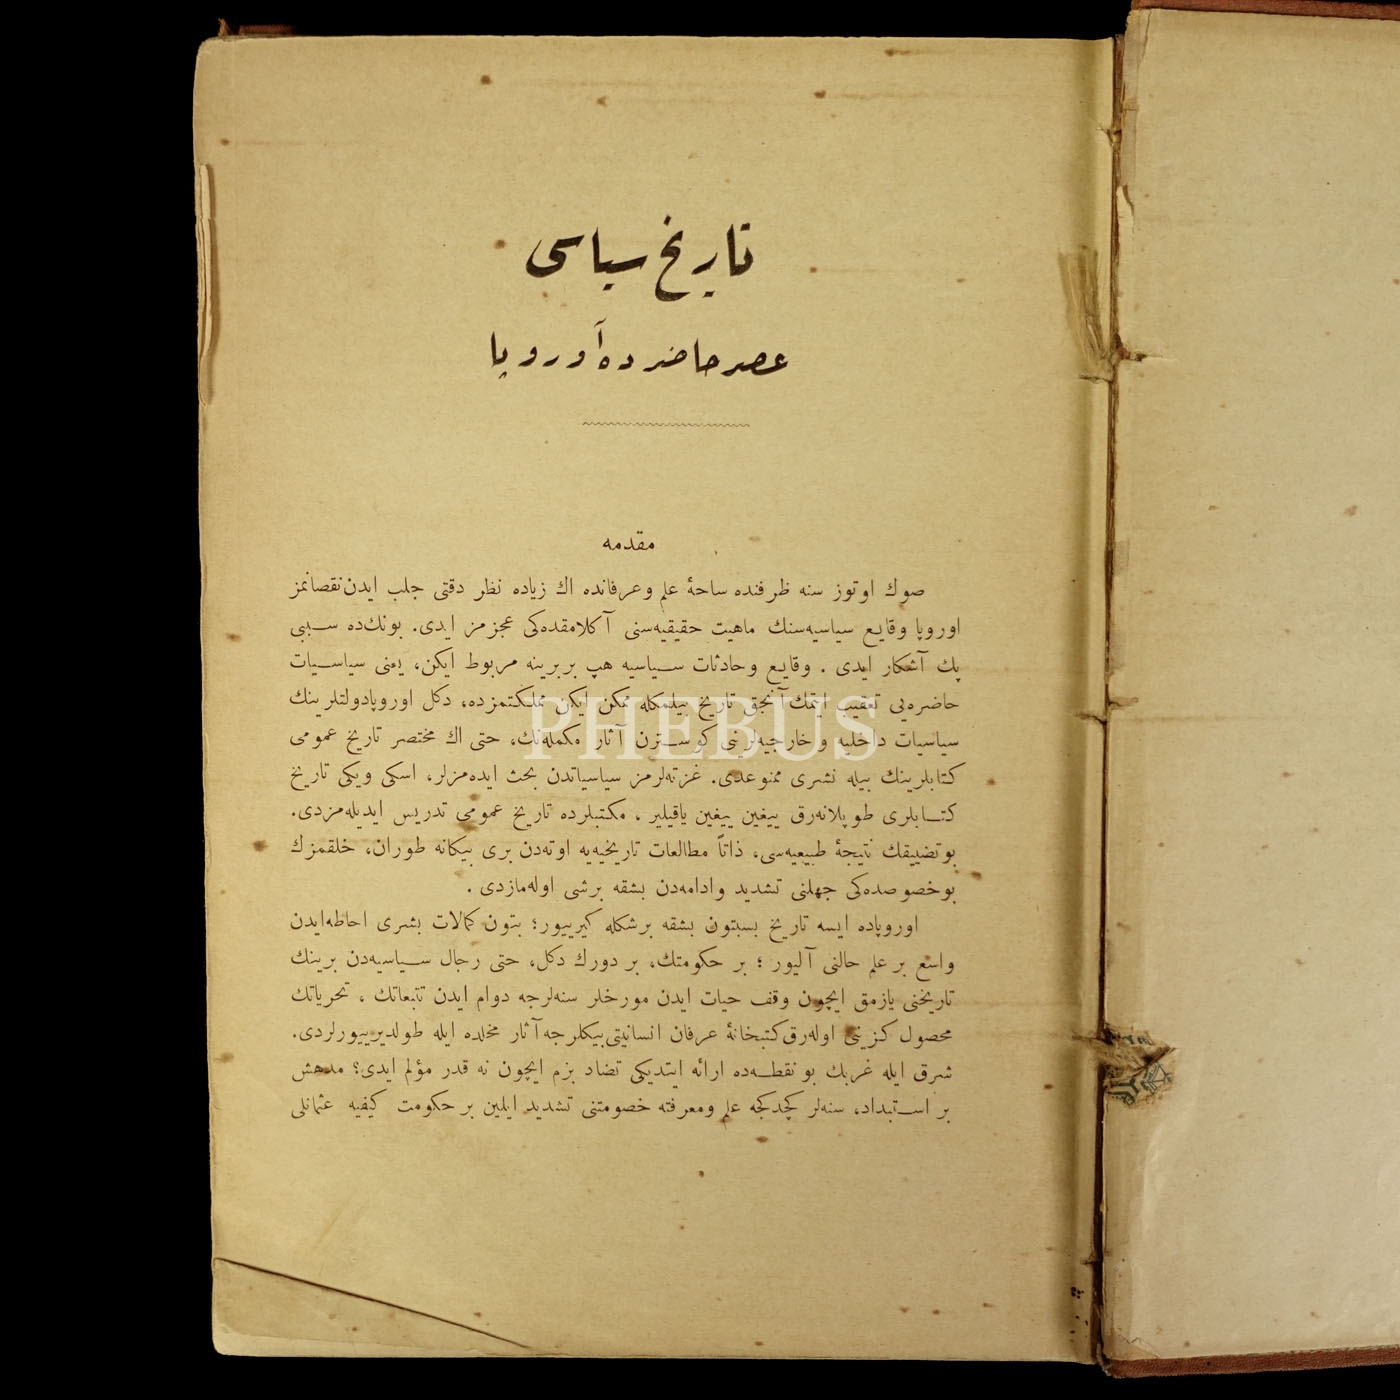 تاریخ سیاسی
عصر حاضرده آوروپا
مقدمه
صوك اوتوز سنه ظرفنده ساحهٔ علم وعرفانده اك زیاده نظر دقتی جلب ایدن نقصانمز
اوروپا وقایع سیاسیه‌سنك ماهیت حقیقیه‌سنی آكلامقده‌كی عجزمز ایدی. بونك‌ده سببی
پك آشكار ایدی . وقایع وحادثات سیاسیه هپ بربرینه مربوط ایكن، یعنی سیاسیات
حاضره‌یی تعقیب ایتمك آنجق تاریخ بیلمكله ممكن ایكن مملكتمزده، دكل اوروپا دولتلرینك
سیاسیات داخلیه و خارجیه‌لرینی كوسترن آثار مكمله‌نك، حتی اك مختصر تاریخ عمومی
كتابلرینك بیله نشری ممنوعدی. غزته‌لرمز سیاسیاتدن بحث ایده‌مزلر، اسكی ویكی تاریخ
كتابلری طوپلانه‌رق ییغین ییغین یاقیلیر ، مكتبلرده تاریخ عمومی تدریس ایدیله‌مزدی.
بوتضییقك نتیجهٔ طبیعیه‌سی، ذاتاً مطالعات تاریخیه‌یه اوته‌دن بری بیكانه طوران، خلقمزك
بوخصوصده‌كی جهلنی تشدید وادامه‌دن بشقه برشی اوله‌مازدی .
اوروپاده ایسه تاریخ بسبتون بشقه برشكله كیرییور؛ بتون كمالات بشری احاطه ایدن
واسع بر علم حالنی آلیور ؛ بر حكومتك، بر دورك دكل، حتی رجال سیاسیه‌دن برینك
تاریخنی یازمق ایچون وقف حیات ایدن مورخلر سنه‌لرجه دوام ایدن تتبعاتك ، تحریاتك
محصول كزینی اوله‌رق كتبخانهٔ عرفان انسانیتی بیكلرجه آثار مخلده ایله طولدیرییورلردی.
شرق ایله غربك بو نقطه‌ده ارائه ایتدیكی تضاد بزم ایچون نه قدر مؤلم ایدی؟ مدهش
بر استبداد، سنه‌لر كچدكجه علم ومعرفته خصومتنی تشدید ایلین بر حكومت كیفیه عثمانلی
PHEBUS